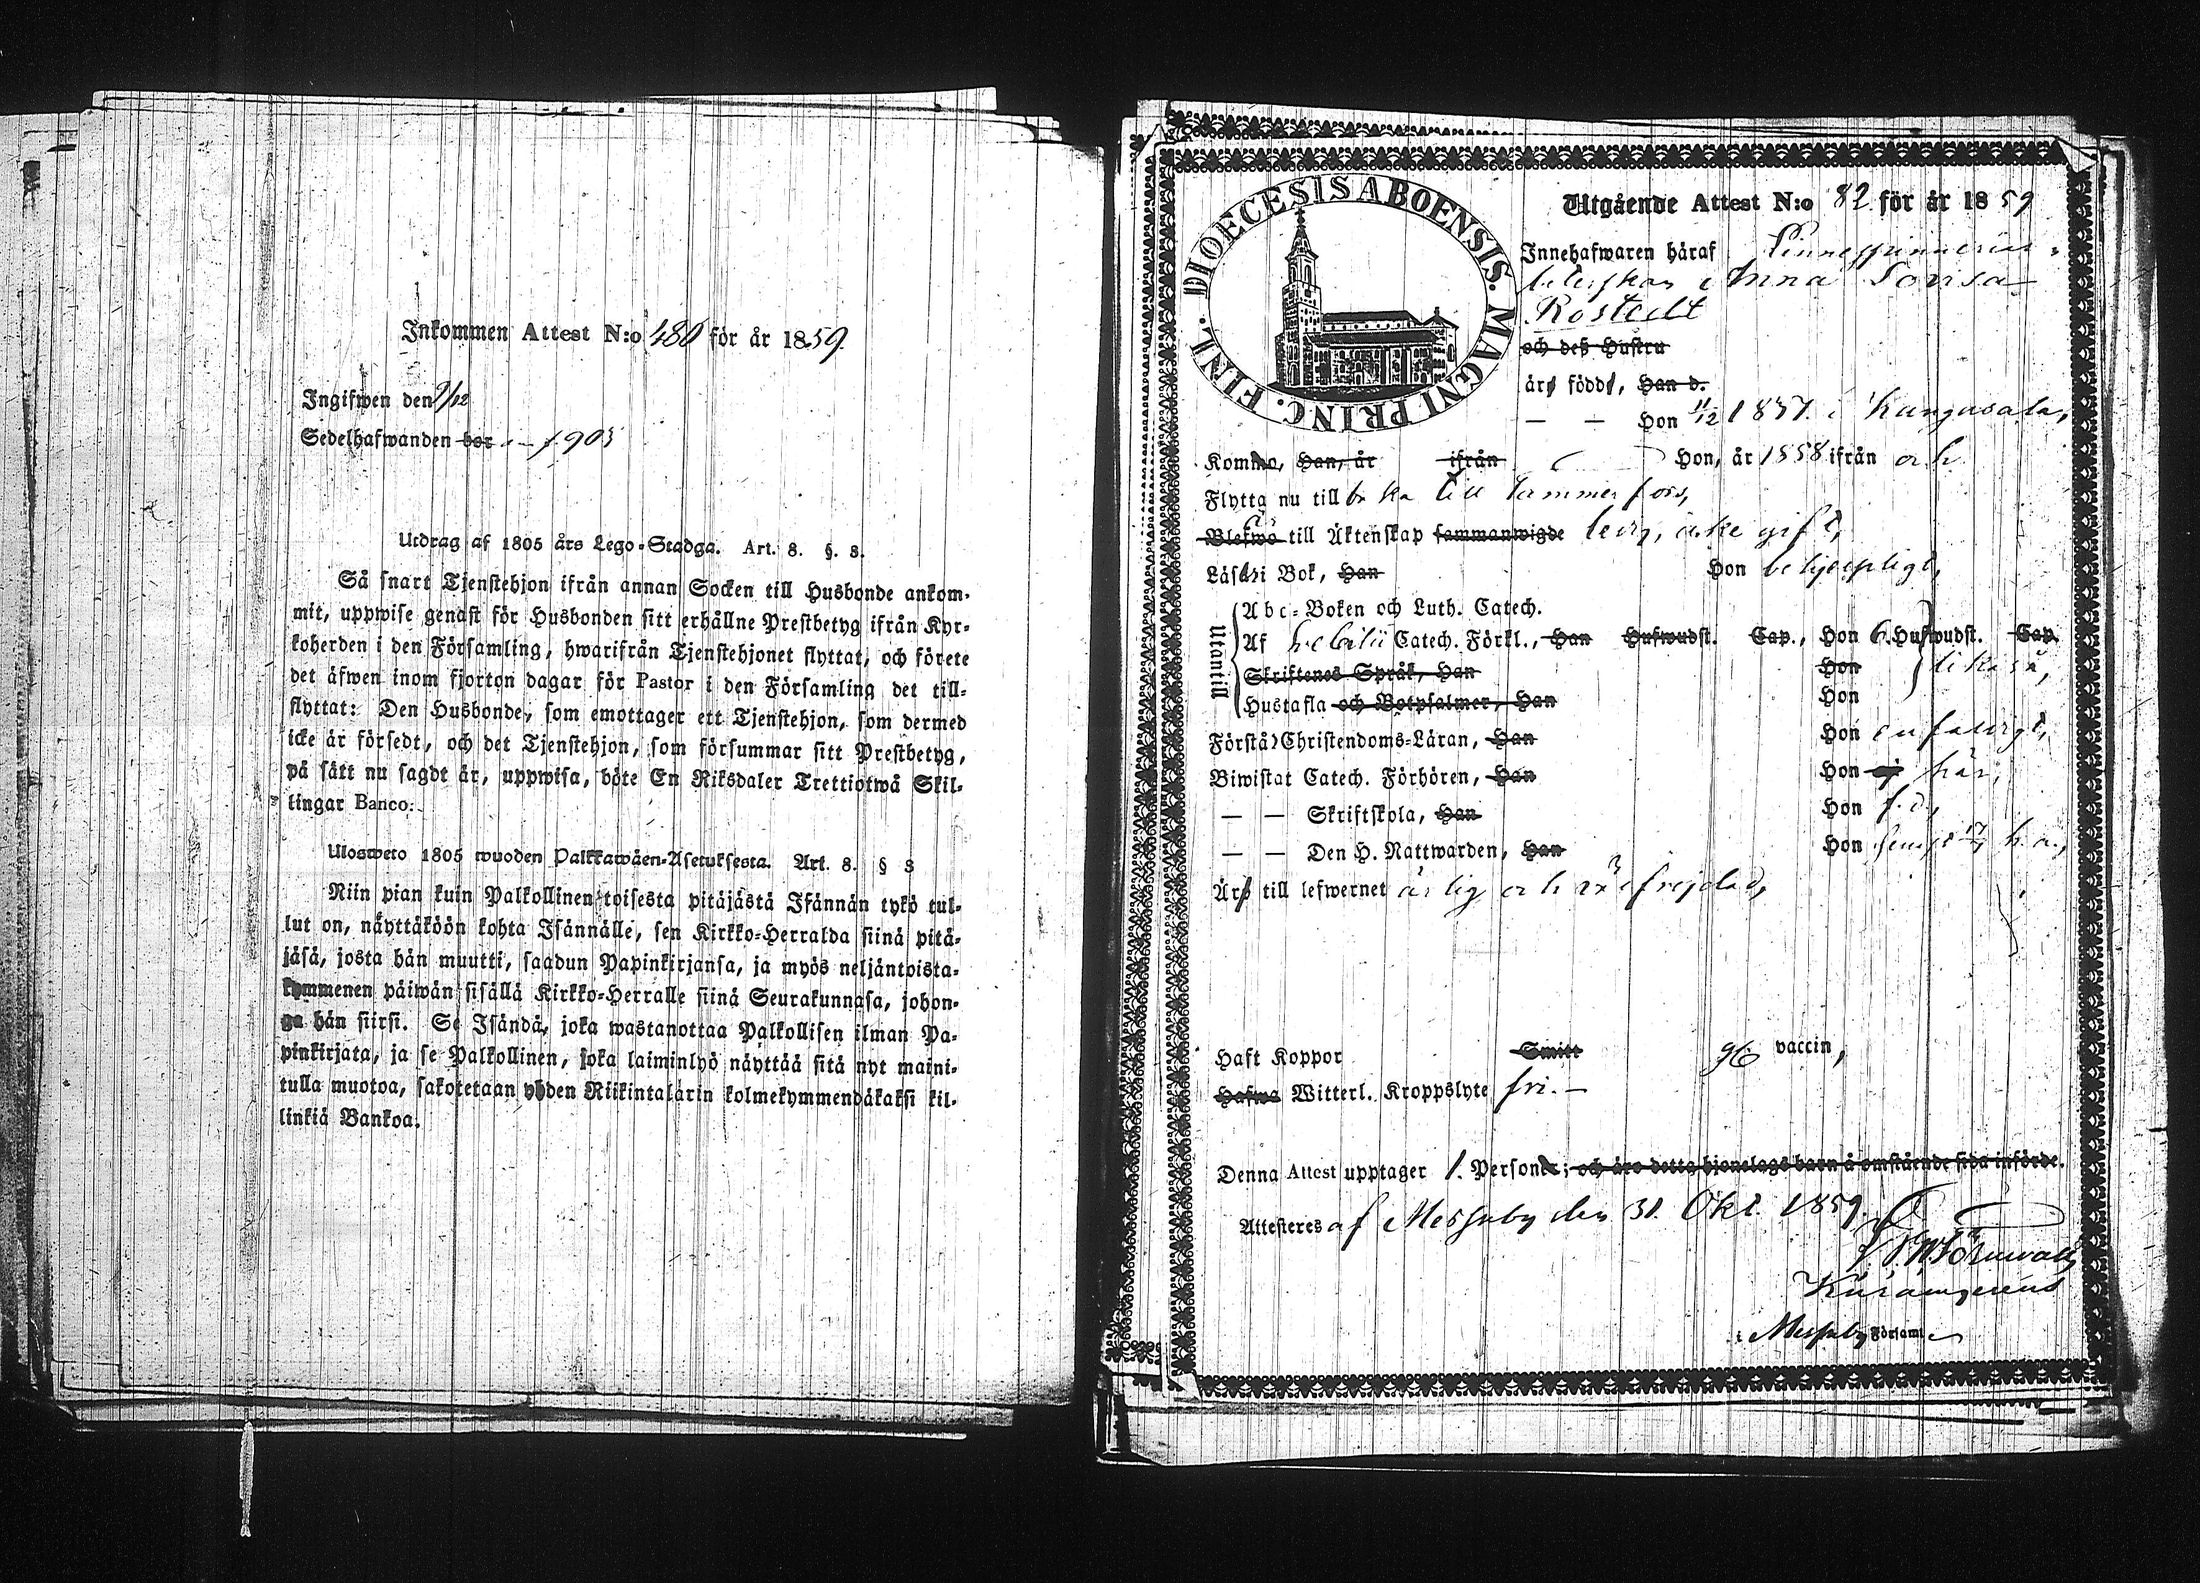 Inkommen Attest N:o 480 för år 1859.
Ingifwen den 9/12
Sedelhafwanden bor f. 903
Utdrag af 1805 års Lego-Stadga. Art. 8. §. 8.
Så snart Tjenstehjon ifrån annan Socken till Husbonde ankom-
mit, uppwise genast för Husbonden sitt erhållne Prestbetyg ifrån Kyr-
koherden i den Församling, hwarifrån Tjenstehjonet flyttat, och förete
det äfwen inom fjorton dagar för Pastor i den Församling det till-
flyttat: Den Husbonde, som emottager ett Tjenstehjon, som dermed
icke är försedt, och det Tjenstehjon, som försummar sitt Prestbetyg,
på sätt nu sagdt är, uppwisa, böte En Riksdaler Trettiotwå Skil-
lingar Banco.
Ulosweto 1805 wuoden Palkkawäen-Asetuksesta. Art. 8. § 8
Niin pian kuin Palkollinen toisesta pitäjästä Isännän tykö tul-
lut on, näyttäköön kohta Isännälle, sen Kirkko-Herralda siinä pitä-
jäsä, josta hän muutti, saadun Papinkirjansa, ja myös neljäntoista-
kymmenen päiwän sisällä Kirkko-Herralle siinä Seurakunnasa, johon-
ga hän siirsi. Se Isändä, joka wastanottaa Palkollisen ilman Pa-
pinkirjata, ja se Palkollinen, joka laiminlyö näyttää sitä nyt maini-
tulla muotoa, sakotetaan yhden Riikintalarin kolmekymmendäkaksi kil-
linkiä Bankoa.
DIOECESIS ABOENSIS. MAGNI PRINC. FINL.
Utgående Attest N:o 82 för år 1859
Innehafwaren häraf Linnespinneri-
Anna Lovisa
Rostedt
och deß Hustru
äro födde, Han d.
— — Hon 11/12 1837 i Kangasala,
Komne, Han, år ifrån Hon, år 1858 ifrån
Flytta nu tillbaka till Tammerfors,
Blefwo till Äktenskap sammanwigde ledig, icke gift,
Läsa i Bok, Han Hon behjelpligt,
Utantill
Abc-Boken och Luth. Catech.
Af Svebilii Catech. Förkl., Han Hufwudst. Cap., Hon 6 Hufwudst. Cap.
Skriftenes Språk, Han Hon likaså,
Hustafla och Botpsalmer, Han Hon
Förstå Christendoms-Läran, Han Hon enfaldigt,
Biwistat Catech. Förhören, Han Hon ej här,
— — Skriftskola, Han Hon f. d.,
— — Den H. Nattwarden, Han Hon h. a.,
Äro till lefwernet ärlig och wälfrejdad,
Haft Koppor Smitt vaccin,
Hafwa Witterl. Kroppslyte fri. —
Denna Attest upptager 1. Personer; och äro detta hjonelags barn å omstående sida införde.
Attesteres af Messuby den 31. Okt. 1859.
i Messuby Församl.